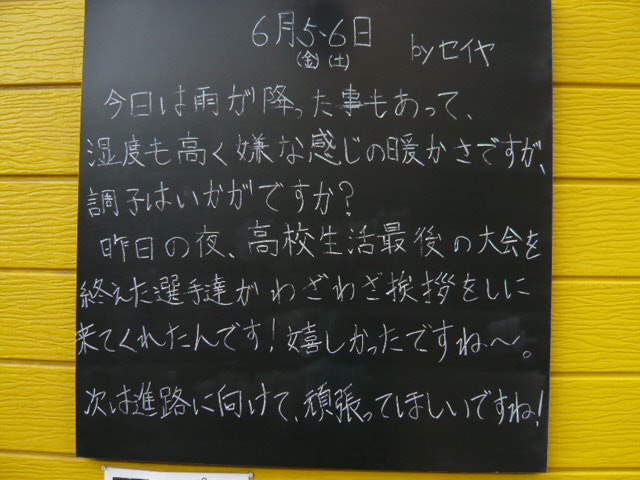 6月5・6日
(金)(土)
byセイヤ
今日は雨が降った事もあって、
湿度も高く嫌な感じの暖かさですが、
調子はいかがですか?
昨日の夜、高校生活最後の大会を
終えた選手達がわざわざ挨拶をしに
来てくれたんです!嬉しかったですね〜。
次は進路に向けて、頑張ってほしいですね!